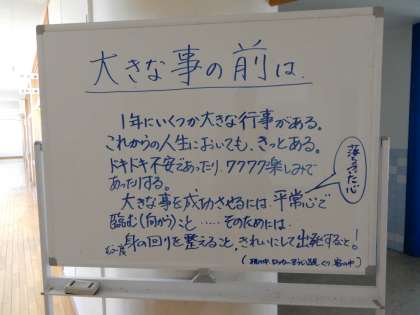 大きな事の前は.
1年にいくつか大きな行事がある。
これからの人生においても、きっとある。
ドキドキ不安であったり、ワクワク楽しみで
あったりする。
大きな事を成功させるには、平常心で
落ちついた心
臨む(向かう)こと……そのためには、
身の回りを整えること、きれいにして出発すること!